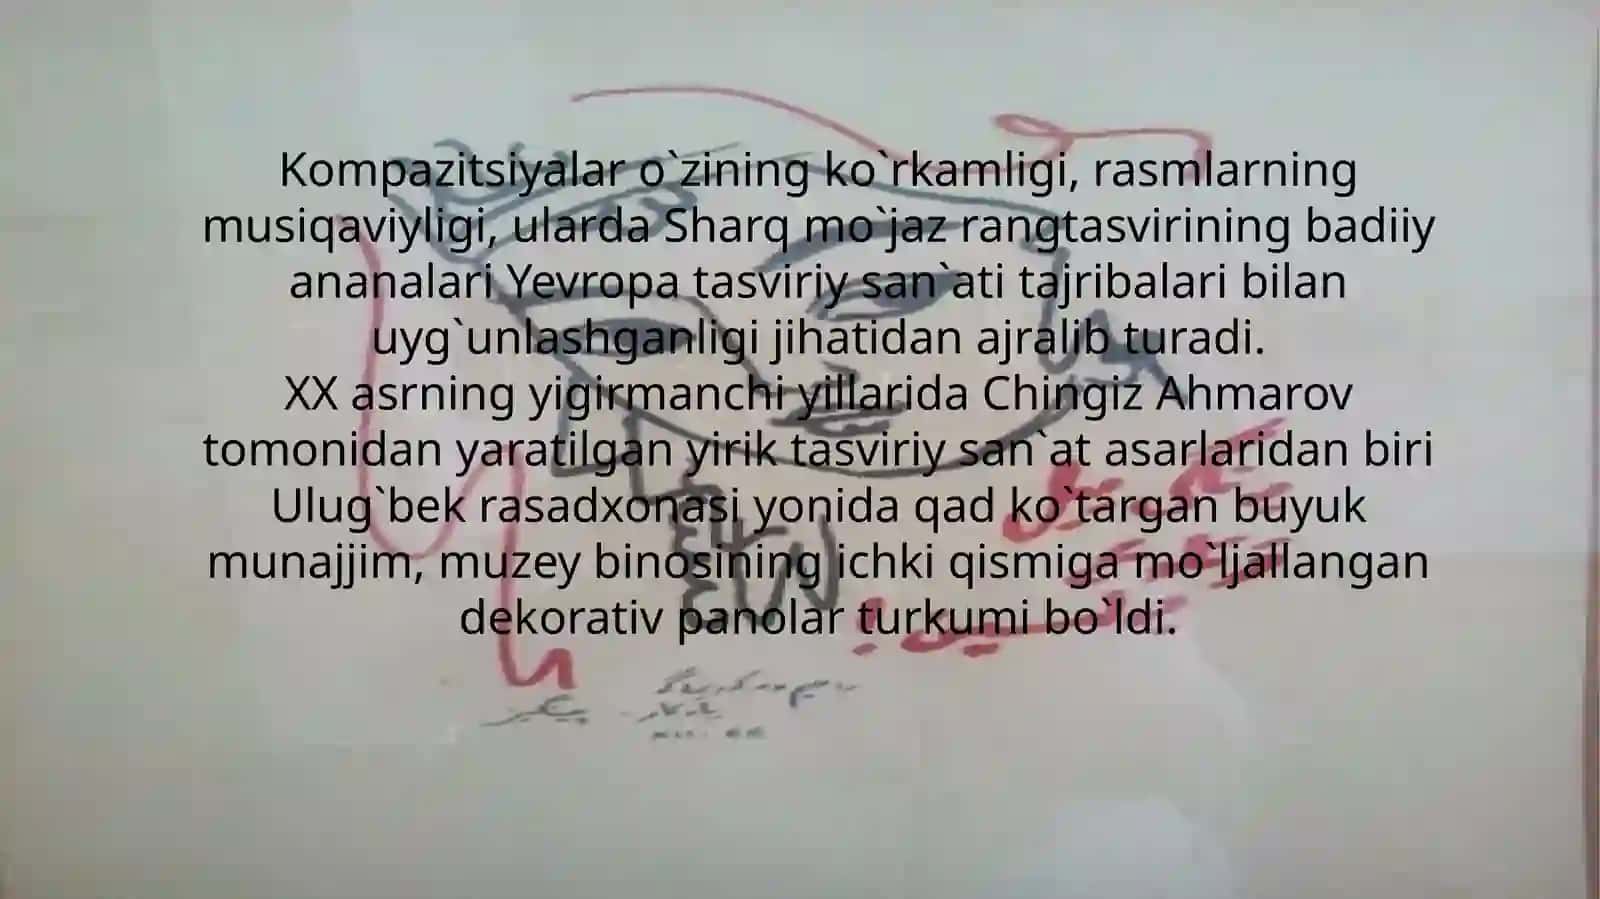 Kompazitsiyalar o`zining ko`rkamligi, rasmlarning
musiqaviyligi, ularda Sharq mo`jaz rangtasvirining badiiy
ananalari Yevropa tasviriy san`ati tajribalari bilan
uyg`unlashganligi jihatidan ajralib turadi.
XX asrning yigirmanchi yillarida Chingiz Ahmarov
tomonidan yaratilgan yirik tasviriy san`at asarlaridan biri
Ulug`bek rasadxonasi yonida qad ko`targan buyuk
munajjim, muzey binosining ichki qismiga mo`ljallangan
dekorativ panolar turkumi bo`ldi.